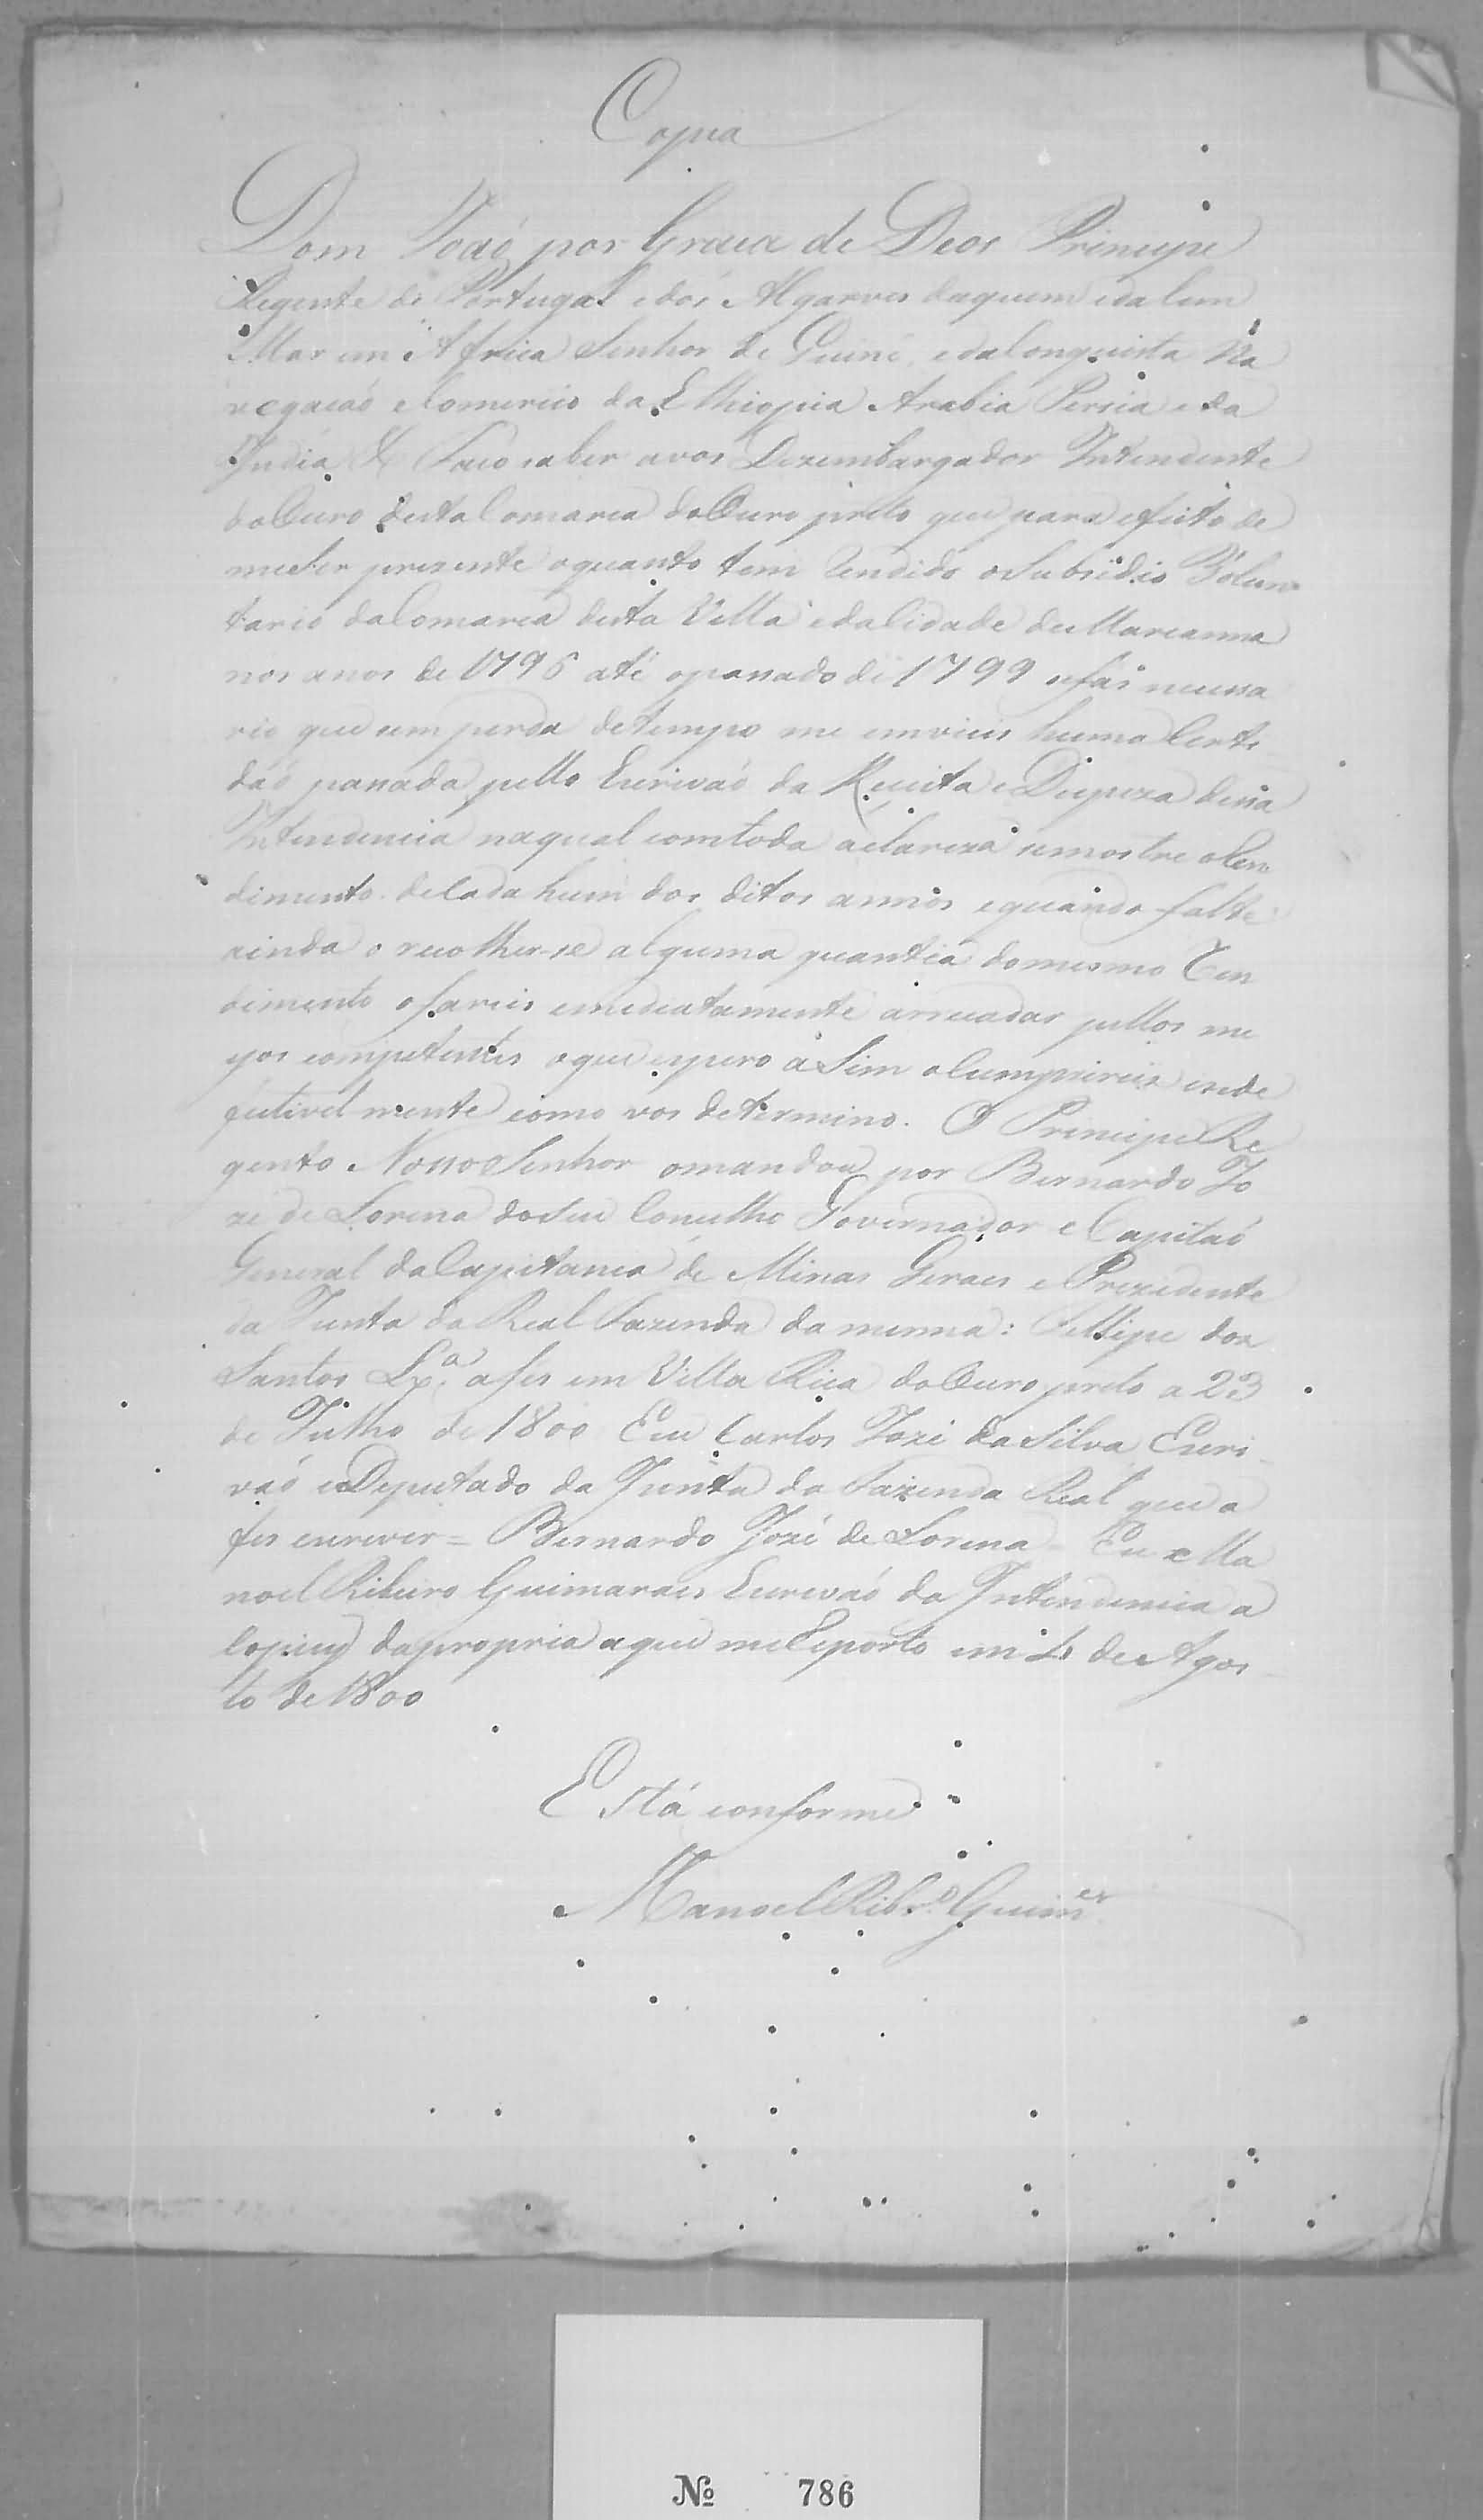 Copia
Dom Joaó por Graca de Deos Principe
Regente de Portugal e dos Algarves daquem e dalem
Mar em Africa Senhor de Guiné, e da Conquista Na
vegacaó e Comercio da Ethiopia Arabia Persia e da
India &. Faco saber avos Dezembargador Intendente
do Ouro desta Comarca do Ouro preto que para efeito de
me ser prezente o quanto tem Rendido o Subsidio Volun
tario da Comarca desta Villa e da Cidade de Marianna
nos anos de 1796 até o passado de 1799 se fás necessa
rio que sem perda de tempo me envieis huma Certi
daó passada pello Escrivaó da Receita e Despeza dessa
Intendencia na qual com toda a clareza se mostre o Ren
dimento de Cada hum dos ditos annos e quando falte
ainda o recolher-se alguma quantia do mesmo Ren
dimento o fareis emediatamente arrecadar pellos me
yos competentes o que espero aSim o Cumprireis inde
fectivel mente como vos determino. O Principe Re
gente Nosso Senhor o mandou por Bernardo Jo
ze de Lorena do Seu Conselho Governador e Capitaó
General da Capitania de Minas Geraes e Prezidente
da Junta da Real Fazenda da mesma: Fellipe dos
Santos Lxa. a fes em Villa Rica do Ouro preto a 23
de Julho de 1800 Eu Carlos Jozé da Silva Escri
vaó e Deputado da Junta da Fazenda Real que a
fes escrever = Bernardo Jozé de Lorena = Eu Ma
noel Ribeiro Guimaraes Escrivaó da Intendencia a
Copiey da propria a que me Reporto em 4 de Agos
to de 1800
Está conforme
Manoel Ribro. Guimes
No 786